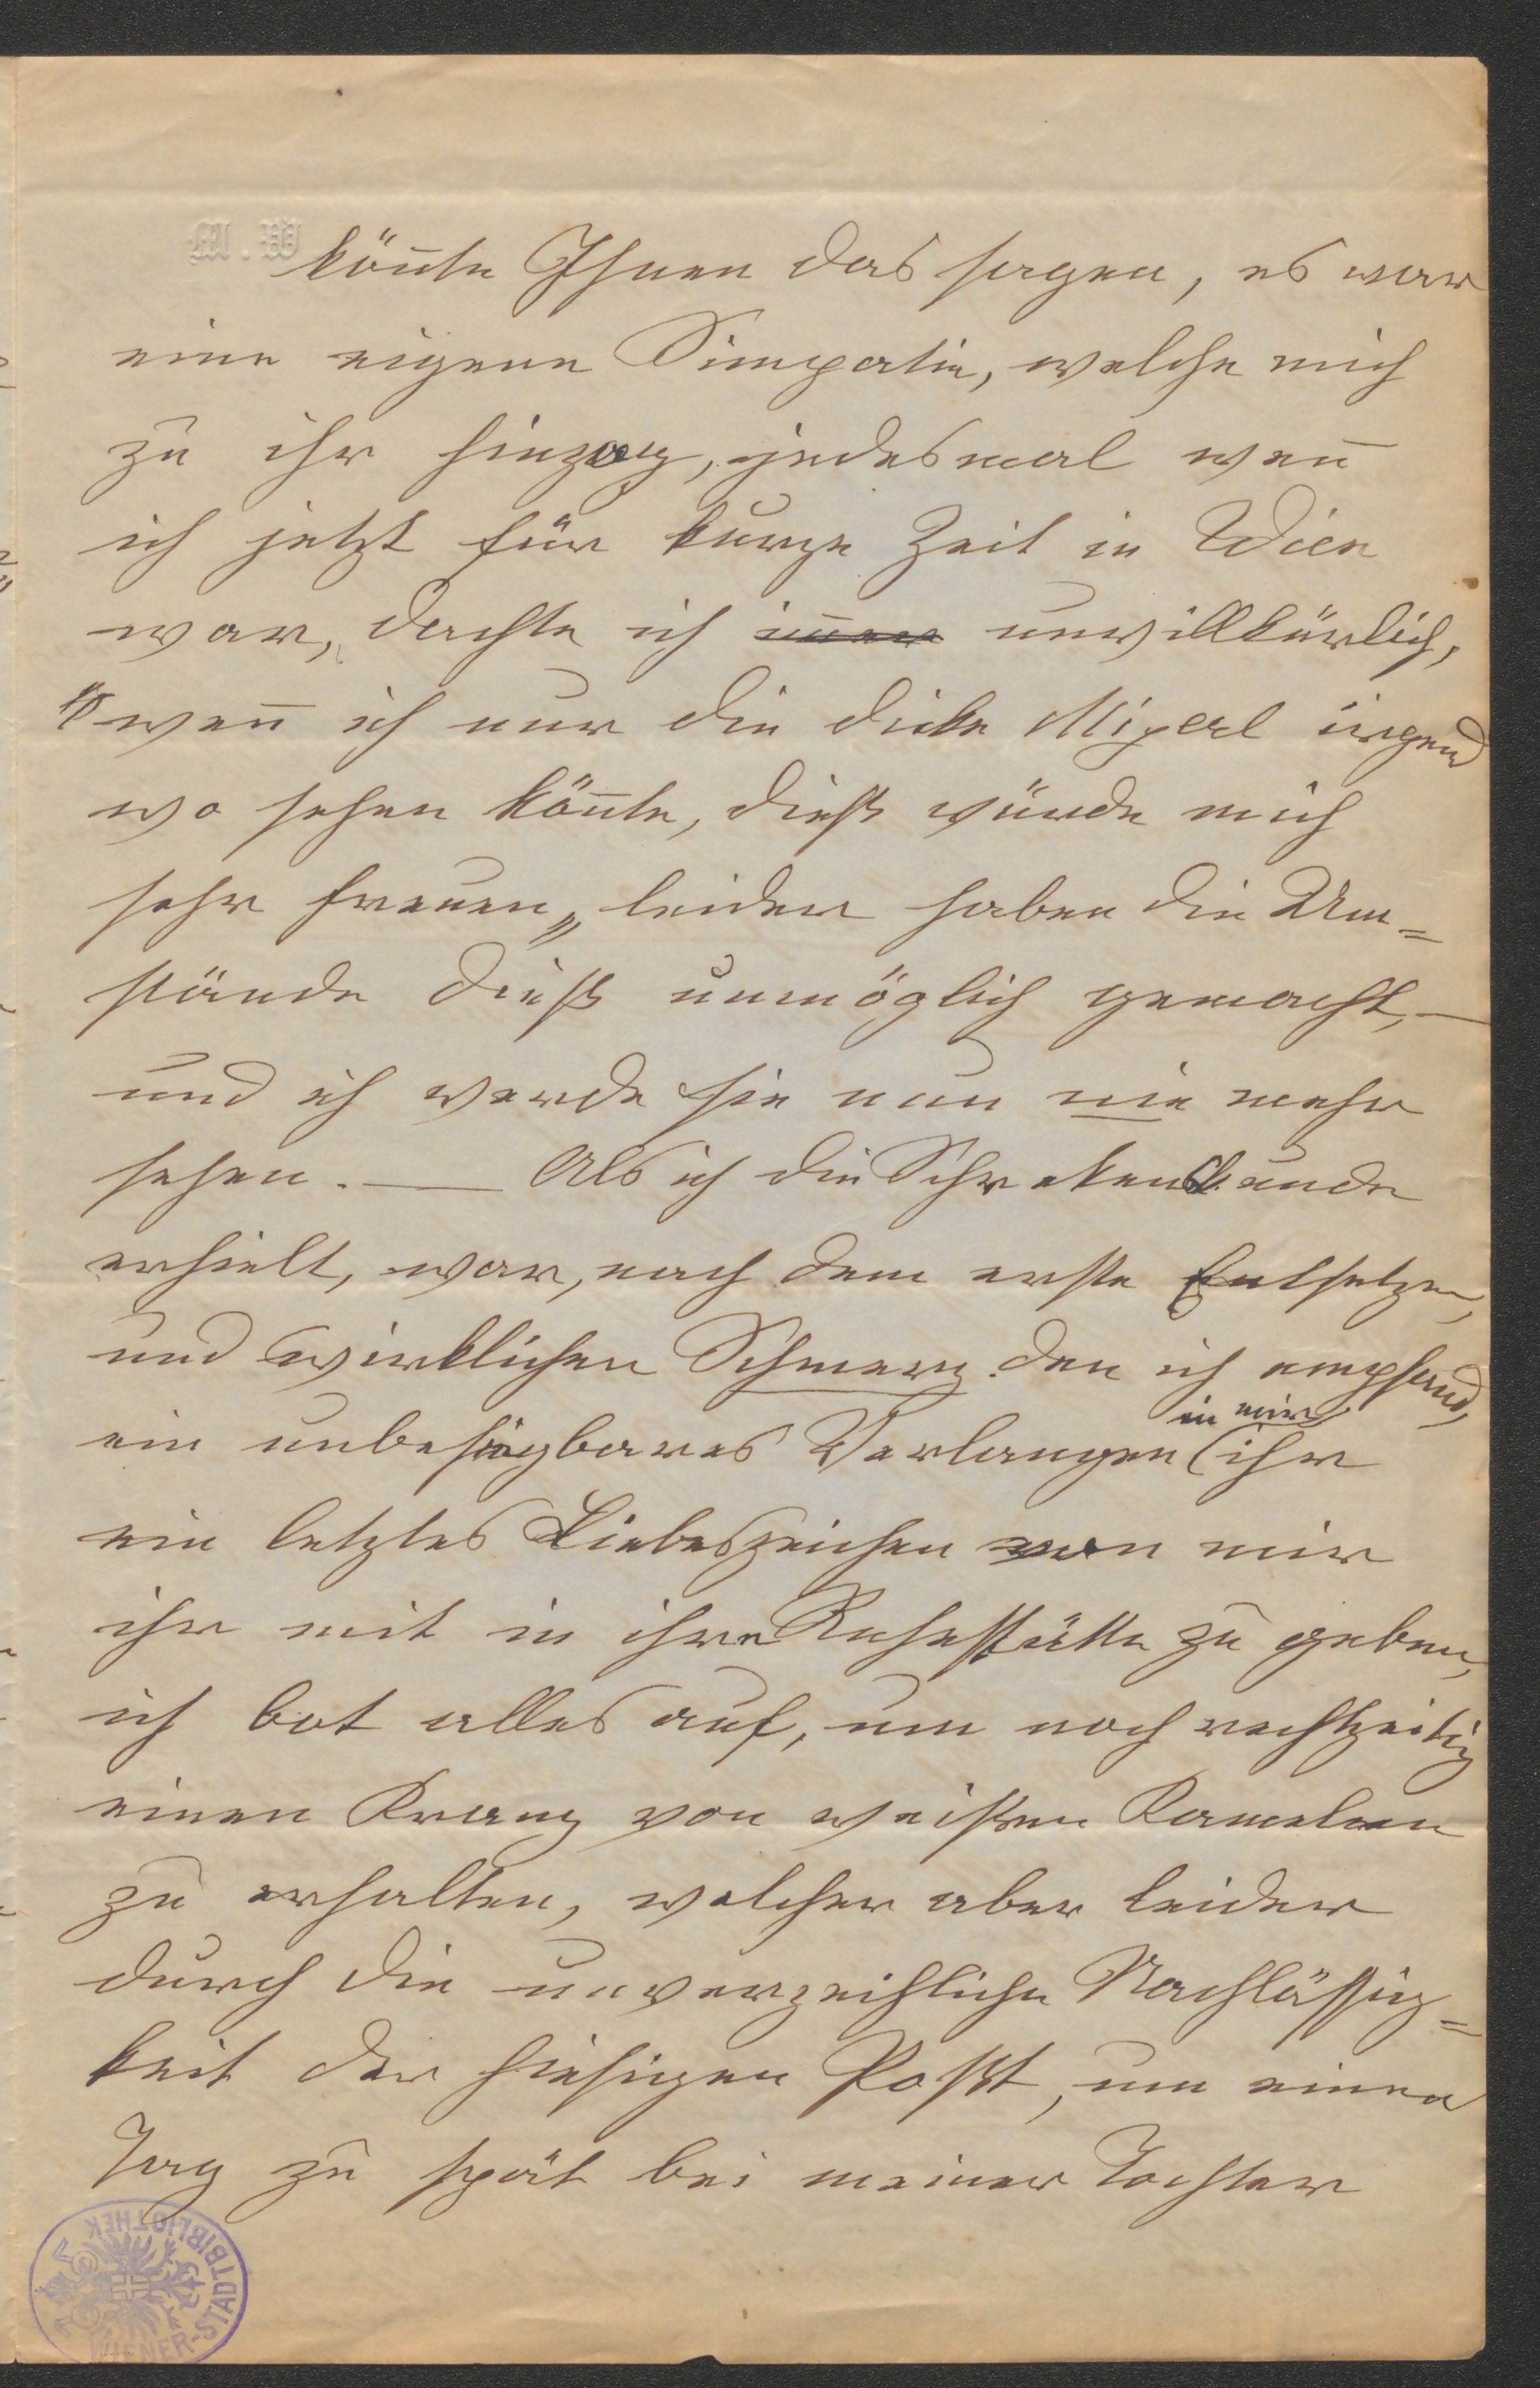 kön̄te Ihnen das sagen, es war
eine eigene Simpatie, welche mich
zu ihr hinzog, jedesmal wen̄
ich jetzt für kurze Zeit in Wien
war, dachte ich im̄er unwillkürlich,
"wen̄ ich nur die dicke Miperl irgend
wo sehen kön̄te, dieß würde mich
sehr freuen„ leider haben die Um=
stände dieß unmöglich gemacht, —
und ich werde sie nun nie mehr
sehen. — Als ich die Schrekenskunde
erhielt, war, nach dem erste Entsetzen,
und wirklichen Schmerz den ich empfand,
in mir
ein unbesiegbares Verlangen (ihr
ein letztes Liebeszeichen von mir
ihr mit in ihre Ruhestätte zu geben,
ich bot alles auf, um noch rechtzeitig
einen Kranz von weißen Kamelien
zu erhalten, welcher aber leider
durch die unverzeihliche Nachlässig=
keit der hiesigen Posst, um einen
Tag zu spät bei meiner Tochter
WIENER-STADTBIBLIOTHEK